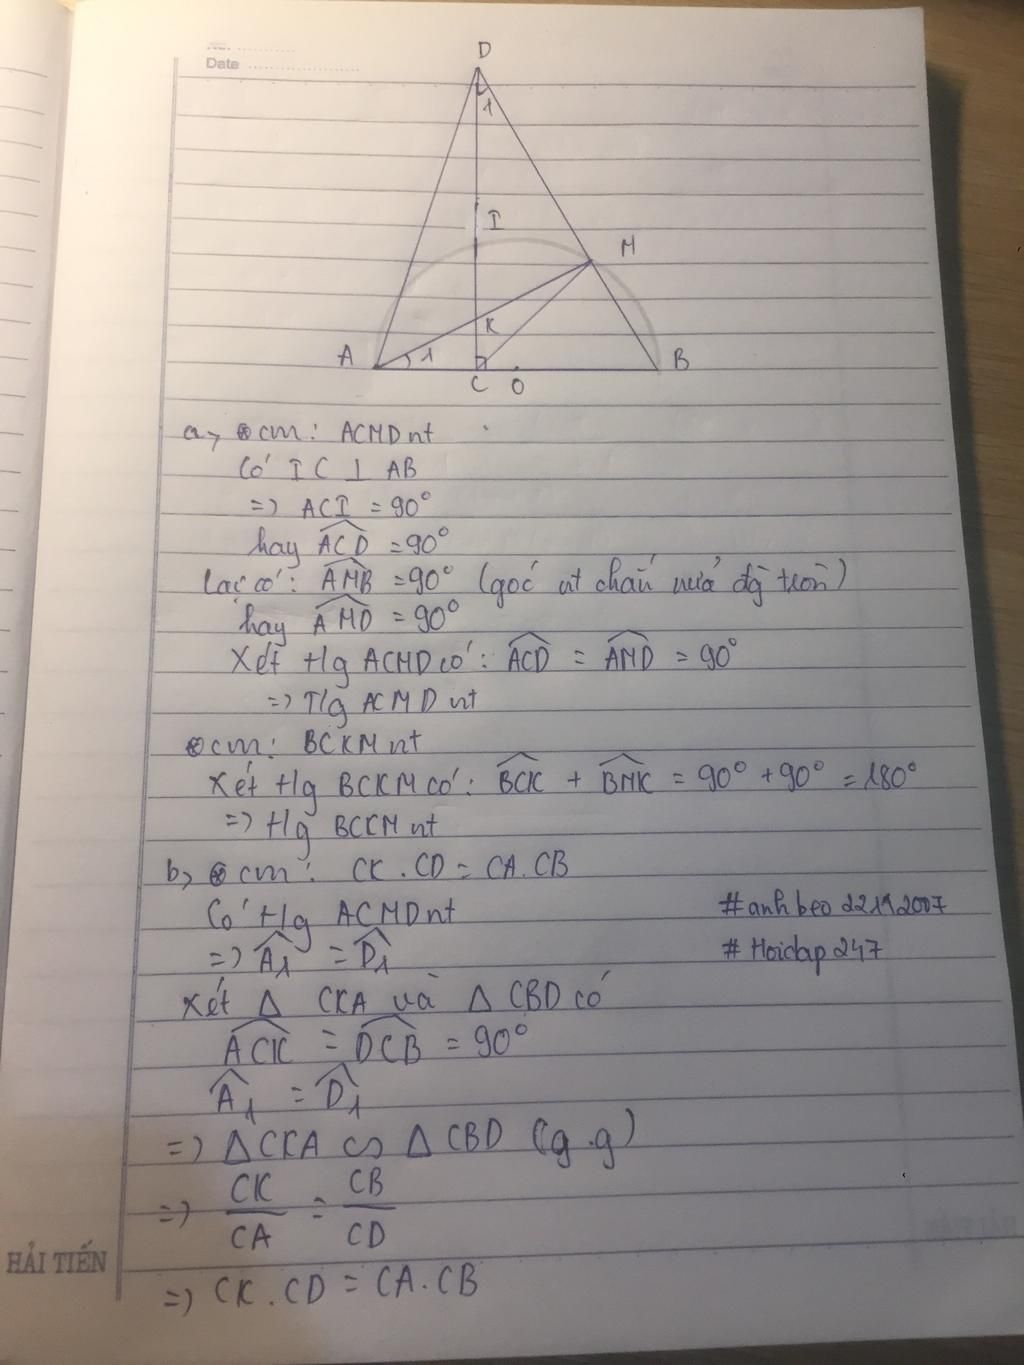 Date
D
1
I
M
K
A
1
B
C
O
a, cm: ACMD nt
Có IC ⊥ AB
=> ACI = 90°
hay ACD = 90°
Lại có: AMB = 90° (góc nt chắn nửa đg tròn)
hay AMD = 90°
Xét t/g ACMD có: ACD = AMD = 90°
=> T/g ACMD nt
cm: BCKM nt
Xét t/g BCKM có: BCK + BMK = 90° + 90° = 180°
=> t/g BCKM nt
b, cm: CK . CD = CA . CB
Có t/g ACMD nt
=> A1 = D1
#anhbeo22112007
# Hoidap247
Xét Δ CKA và Δ CBD có
ACK = DCB = 90°
A1 = D1
=> Δ CKA ∽ Δ CBD (g.g)
=> CK/CA = CB/CD
=> CK . CD = CA . CB
HẢI TIẾN